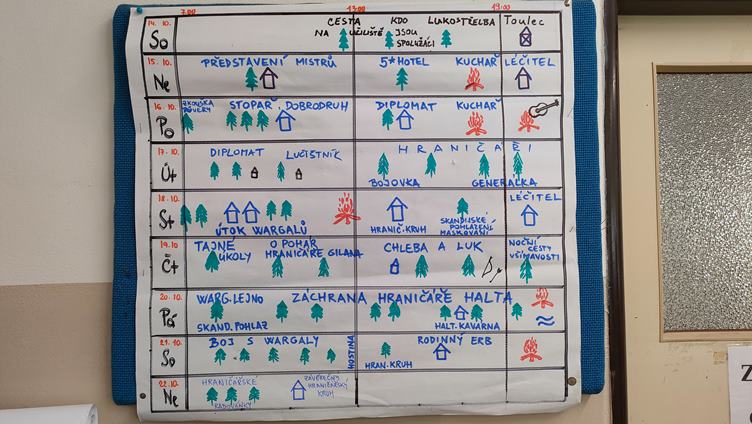 7:00 13:00 19:00
14. 10.
So
CESTA KDO LUKOSTŘELBA Toulec
NA UČILIŠTĚ JSOU
SPOLUŽÁCI
15. 10.
Ne
PŘEDSTAVENÍ MISTRŮ 5* HOTEL KUCHAŘ LÉČITEL
16. 10.
Po
ZKOUŠKA
DŮVĚRY
STOPAŘ, DOBRODRUH DIPLOMAT KUCHAŘ
17. 10.
Út
DIPLOMAT LUČIŠTNÍK HRANIČÁŘI
BOJOVKA GENERÁLKA
18. 10.
St
ÚTOK WARGALŮ HRANIČ. KRUH
SKANDIJSKÉ
POHLAZENÍ
MASKOVÁNÍ
LÉČITEL
19. 10
Čt
TAJNÉ
ÚKOLY
O POHÁR
HRANIČÁŘE GILANA
CHLEBA A LUK
NOČNÍ
CESTY
VŠÍMAVOSTI
20. 10.
Pá
WARG. LEJNO ZÁCHRANA HRANIČÁŘE HALTA
SKAND. POHLAZ HALT. KAVÁRNA
21. 10.
So
BOJ S WARGALY
HOSTINA
HRAN. KRUH
RODINNÝ ERB
22. 10.
Ne
HRANIČÁŘSKÉ
RADOVÁNKY
ZÁVĚREČNÝ
HRANIČÁŘSKÝ
KRUH
Z